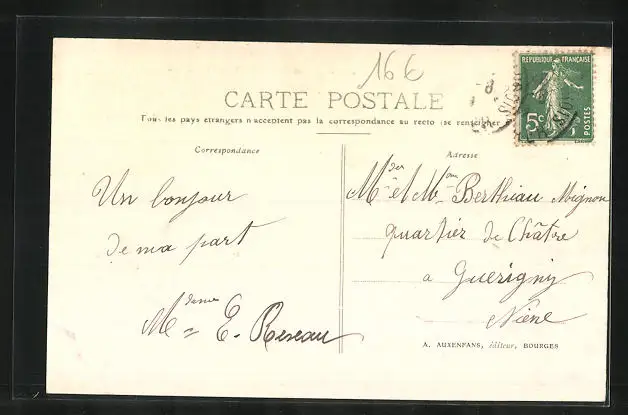 16€
CARTE POSTALE
Tous les pays étrangers n'acceptent pas la correspondance au recto (se renseigner
RÉPUBLIQUE FRANÇAISE
5c
POSTES
Correspondance
Adresse
Un bonjour
de ma part
Mdame E. Reseau
et Berthiau Mignon
quartier de Châtre
a Guerigny
Nièvre
A. AUXENFANS, éditeur, BOURGES